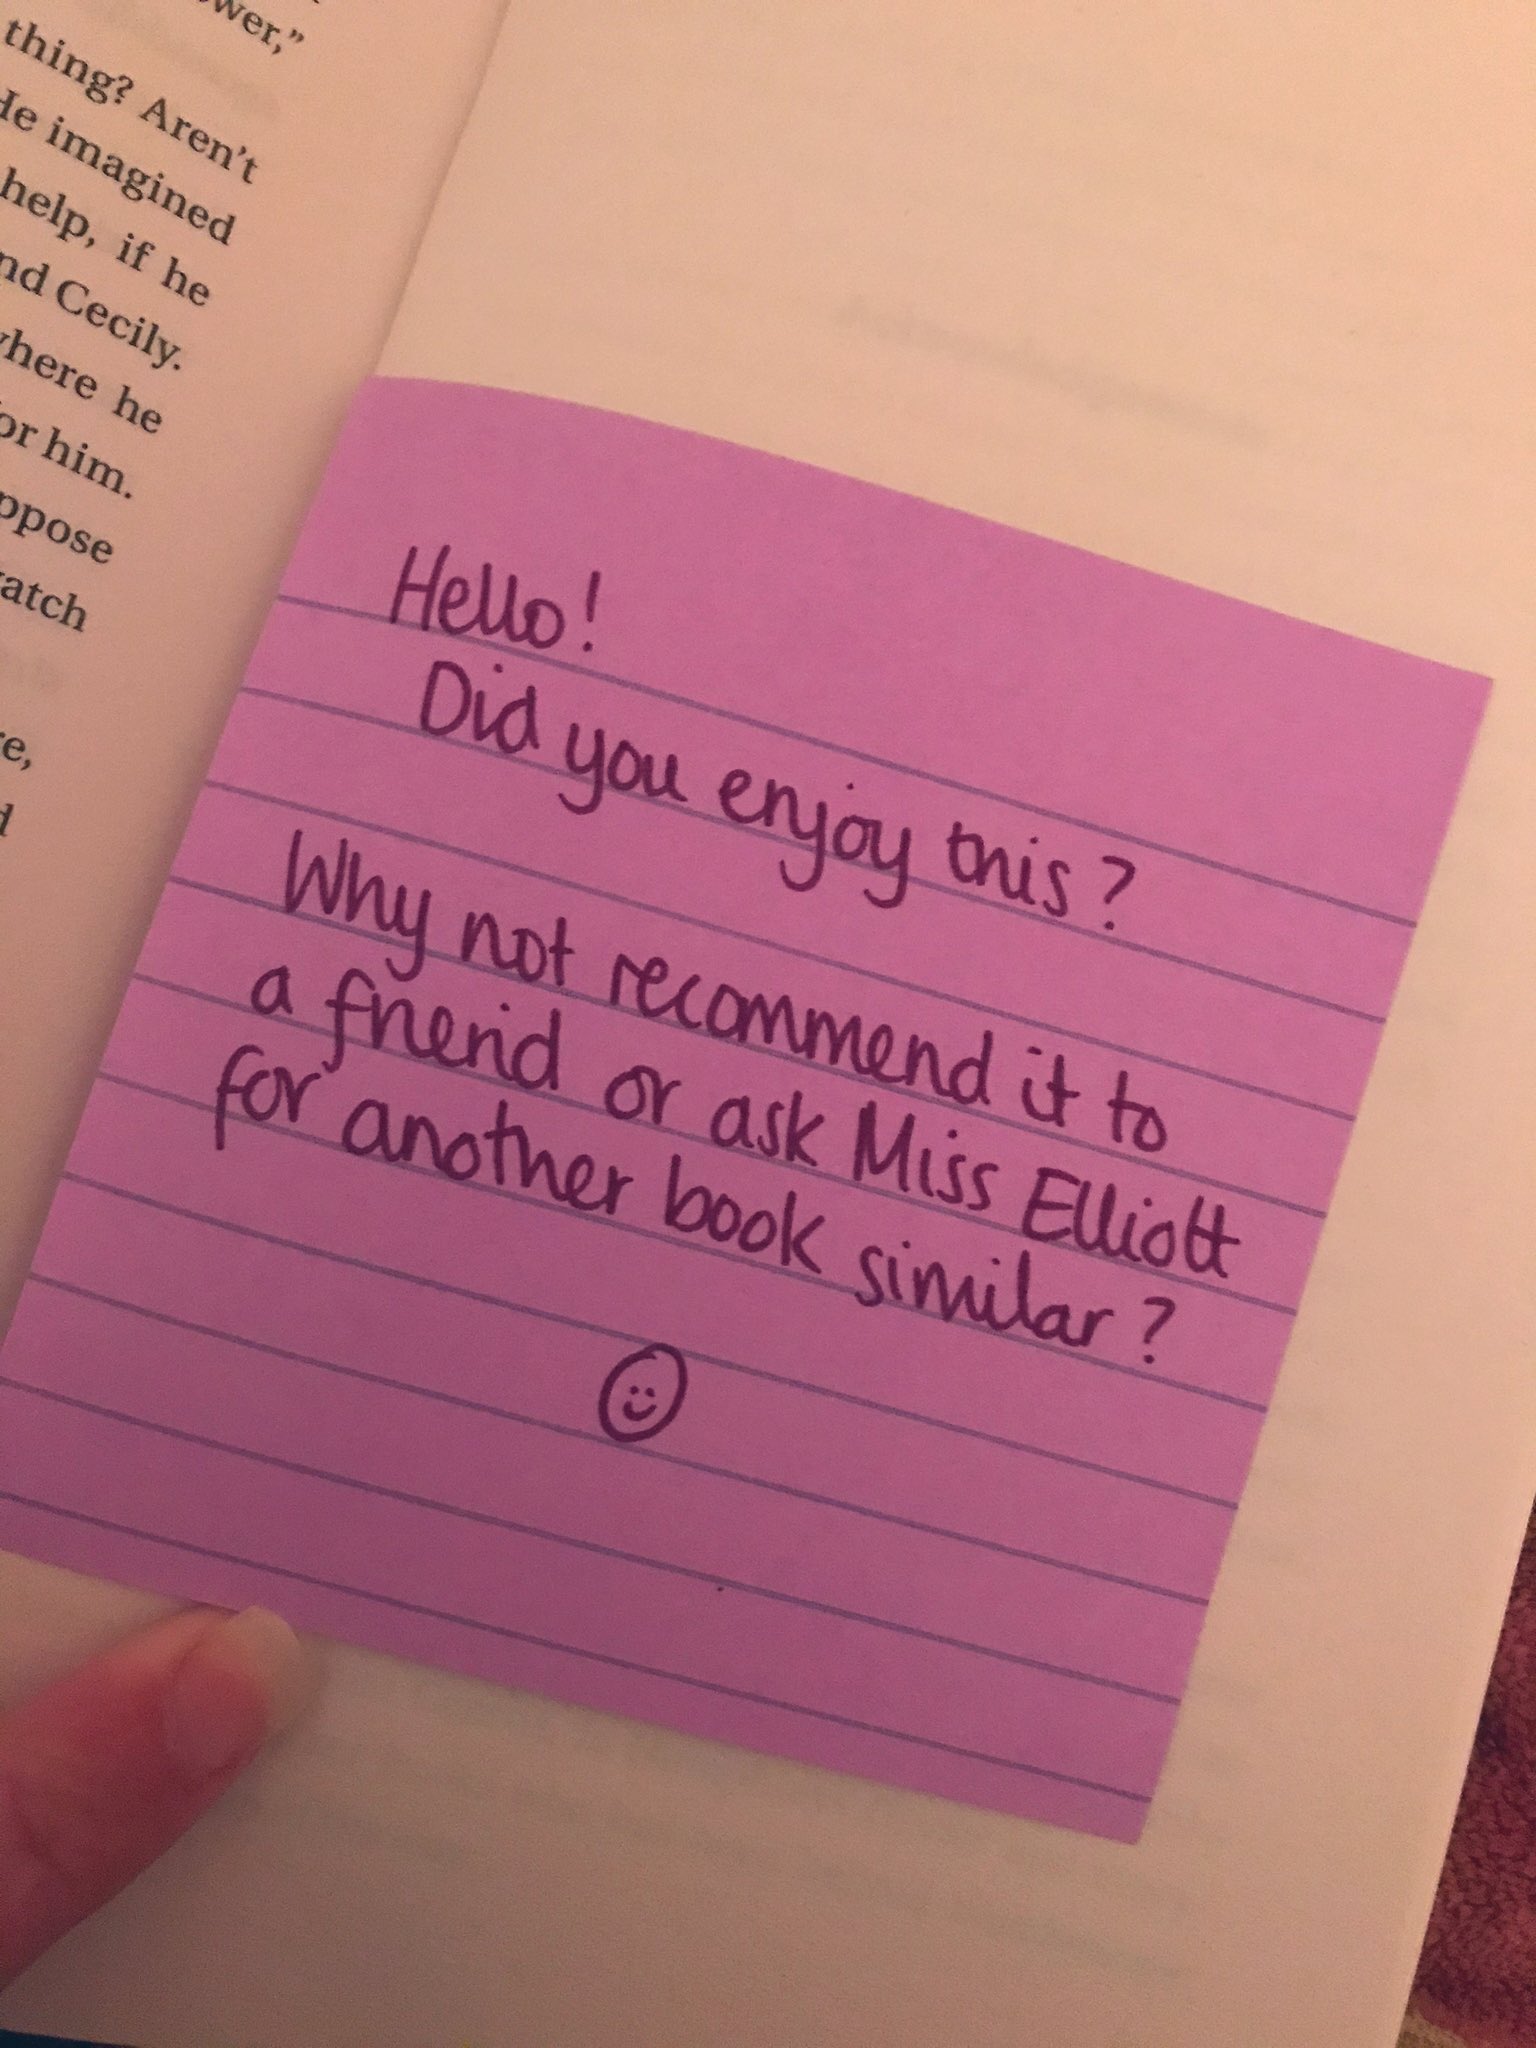 thing? Aren't
imagined
help, if he
Cecily.
he
him.
Hello!
Did you enjoy this?
Why not recommend it to
a friend or ask Miss Elliott
for another book similar?